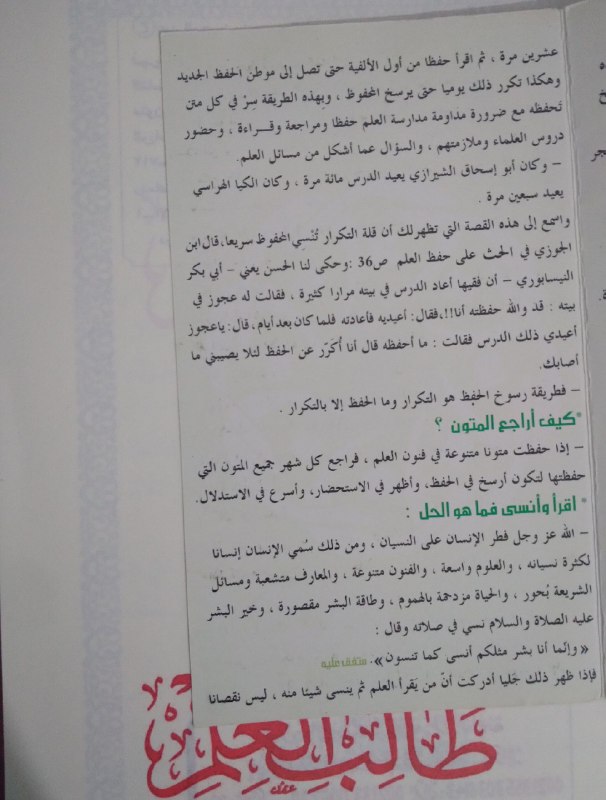 عشرين مرة ، ثم اقرأ حفظا من أول الألفية حتى تصل إلى موطن الحفظ الجديد
وهكذا تكرر ذلك يوميا حتى يرسخ المحفوظ ، وبهذه الطريقة سِرْ في كل متن
تَحفظه مع ضرورة مداومة مدارسة العلم حفظا ومراجعة وقــراءة ، وحضور
دروس العلماء وملازمتهم ، والسؤال عما أشكل من مسائل العلم.
– وكان أبو إسحاق الشيرازي يعيد الدرس مائة مرة ، وكان الكيا الهراسي
يعيد سبعين مرة .
واسمع إلى هذه القصة التي تظهرلك أن قلة التكرار تُنْسِي المحفوظ سريعا،قال ابن
الجوزي في الحث على حفظ العلم ص36 :وحكى لنا الحسن يعني – أبي بكر
النيسابوري – أن فقيها أعاد الدرس في بيته مرارا كثيرة ، فقالت له عجوز في
بيته : قد والله حفظته أنا!!،فقال: أعيديه فأعادته فلما كان بعد أيام، قال: ياعجوز
أعيدي ذلك الدرس فقالت : ما أحفظه قال أنا أُكَرّر عن الحفظ لئلا يصيبني ما
أصابك.
– فطريقة رسوخ الحفظ هو التكرار وما الحفظ إلا بالتكرار .
*كيف أراجع المتون ؟
– إذا حفظت متونا متنوعة في فنون العلم ، فراجع كل شهر جميع المتون التي
حفظتها لتكون أرسخ في الحفظ، وأظهر في الاستحضار، وأسرع في الاستدلال.
* اقرأ وأنسى فما هو الحل :
– الله عز وجل فطر الإنسان على النسيان ، ومن ذلك سُمي الإنسان إنسانا
لكثرة نسيانه ، والعلوم واسعة ، والفنون متنوعة ، والمعارف متشعبة ومسائل
الشريعة بُحور ، والحياة مزدحمة بالهموم ، وطاقة البشر مقصورة ، وخير البشر
عليه الصلاة والسلام نسي في صلاته وقال :
« وإنّما أنا بشر مثلكم أنسى كما تنسون ». متفق عليه
فإذا ظهر ذلك جَليا أدركت أنّ من يَقرأ العلم ثم ينسى شيئا منه ، ليس نقصانا
طَالِبِ العِلْمِ